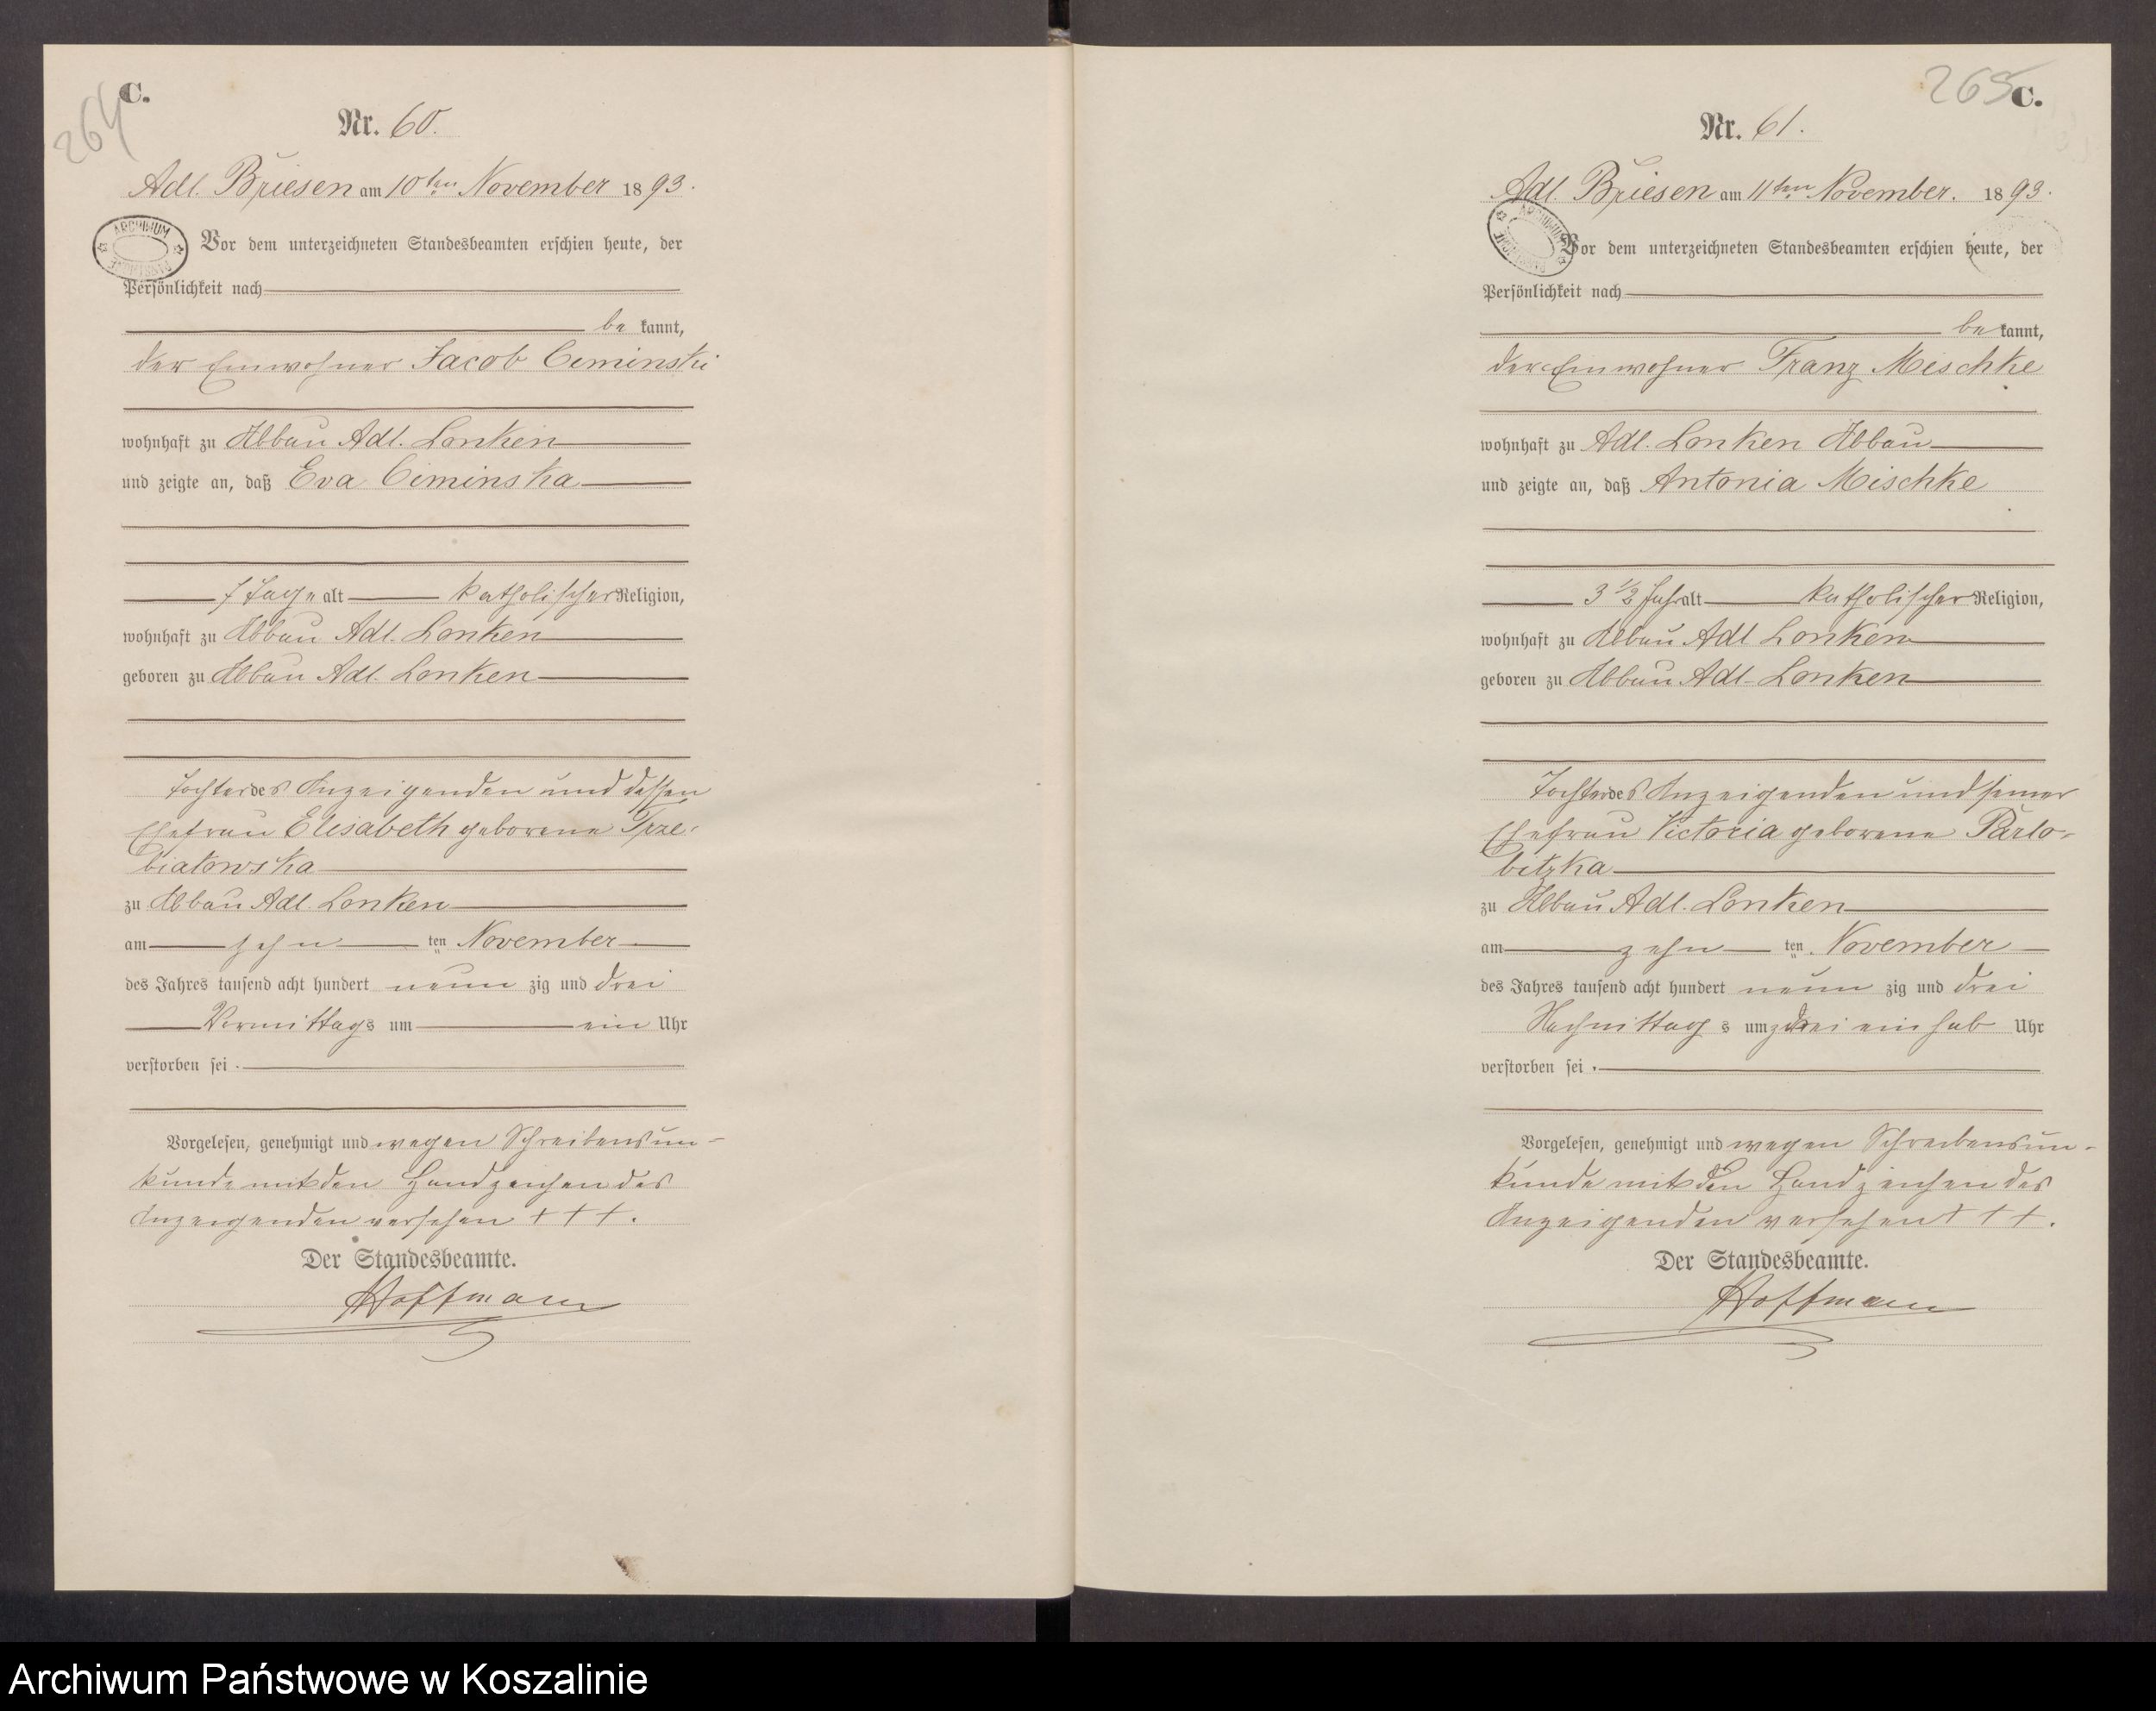 264
C.
Nr. 60.
Adl. Briesen am 10ten November 1893.
ARCHIWUM
Vor dem unterzeichneten Standesbeamten erschien heute, der
Persönlichkeit nach
be kannt,
der Einwohner Jacob Ciminski
wohnhaft zu Abbau Adl. Lonken
und zeigte an, daß Eva Ciminska
7 Tage alt katholischer Religion,
wohnhaft zu Abbau Adl. Lonken
geboren zu Abbau Adl. Lonken
Tochter des Anzeigenden und dessen
Ehefrau Elisabeth geborene Trze-
biatowska
zu Abbau Adl. Lonken
am zehn ten November
des Jahres tausend acht hundert neun zig und drei
Vormittags um ein Uhr
verstorben sei.
Vorgelesen, genehmigt und wegen Schreibensun-
kunde mit den Handzeichen des
Anzeigenden versehen + + +.
Der Standesbeamte.
Hoffmann
265
C.
Nr. 61.
Adl. Briesen am 11ten November. 1893.
ARCHIWUM
Vor dem unterzeichneten Standesbeamten erschien heute, der
Persönlichkeit nach
be kannt,
der Einwohner Franz Mischke
wohnhaft zu Adl. Lonken Abbau
und zeigte an, daß Antonia Mischke
3 1/2 Jahr alt katholischer Religion,
wohnhaft zu Abbau Adl Lonken
geboren zu Abbau Adl. Lonken
Tochter des Anzeigenden und seiner
Ehefrau Victoria geborene Parlo-
bitzka
zu Abbau Adl. Lonken
am zehn ten November
des Jahres tausend acht hundert neun zig und drei
Nachmittags um drei einhalb Uhr
verstorben sei.
Vorgelesen, genehmigt und wegen Schreibensun-
kunde mit den Handzeichen des
Anzeigenden versehen + + +.
Der Standesbeamte.
Hoffmann
Archiwum Państwowe w Koszalinie